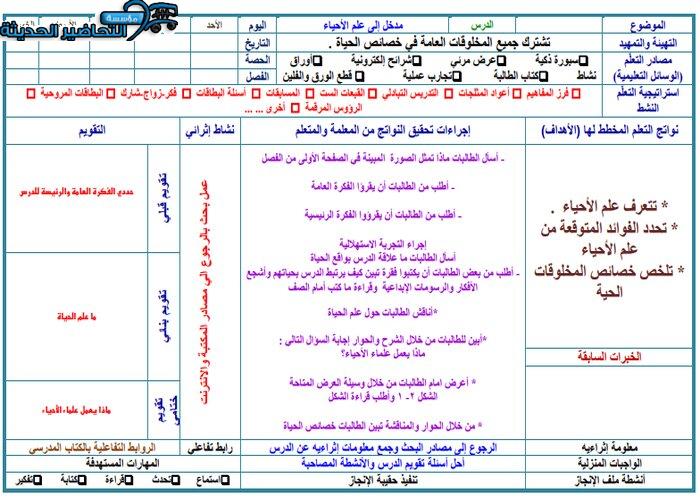 مؤسسة
التحاضير الحديثة
الموضوع
الدرس
مدخل إلى علم الأحياء
اليوم
الأحد
التهيئة والتمهيد
تشترك جميع المخلوقات العامة في خصائص الحياة .
التاريخ
مصادر التعلم
(الوسائل التعليمية)
سبورة ذكية
عرض مرئي
شرائح إلكترونية
أوراق
نشاط
كتاب الطالبة
تجارب عملية
قطع الورق والفلين
الحصة
الفصل
استراتيجية التعلم
النشط
فرز المفاهيم
أعواد المثلجات
التدريس التبادلي
القبعات الست
المسابقات
أسئلة البطاقات
فكر-زواج-شارك
البطاقات المروحية
الرؤوس المرقمة
أخرى ... ...
نواتج التعلم المخطط لها (الأهداف)
إجراءات تحقيق النواتج من المعلمة والمتعلم
نشاط إثرائي
التقويم
* تتعرف علم الأحياء .
* تحدد الفوائد المتوقعة من
علم الأحياء
* تلخص خصائص المخلوقات
الحية
الخبرات السابقة
- أسأل الطالبات ماذا تمثل الصورة المبينة في الصفحة الأولى من الفصل
- أطلب من الطالبات أن يقرؤا الفكرة العامة
- أطلب من الطالبات أن يقرؤوا الفكرة الرئيسية
إجراء التجربة الاستهلالية
أسأل الطالبات ما علاقة الدرس بواقع الحياة
- أطلب من بعض الطالبات أن يكتبوا فقرة تبين كيف يرتبط الدرس بحياتهم وأشجع
الأفكار والرسومات الإبداعية وقراءة ما كتب أمام الصف
*أناقش الطالبات حول علم الحياة
*أبين للطالبات من خلال الشرح والحوار إجابة السؤال التالى :
ماذا يعمل علماء الأحياء؟
* أعرض امام الطالبات من خلال وسيلة العرض المتاحة
الشكل ٢- ١ وأطلب قراءة الشكل
* من خلال الحوار والمناقشة تبين الطالبات خصائص الحياة
عمل بحث بالرجوع الي مصادر المكتبة والانترنت
تقويم قبلي
حددي الفكرة العامة والرئيسة للدرس
تقويم بنائي
ما علم الحياة
تقويم ختامى
ماذا يعمل علماء الأحياء
معلومة إثرائيه
الرجوع إلى مصادر البحث وجمع معلومات إثراءيه عن الدرس
رابط تفاعلي
الروابط التفاعلية بالكتاب المدرسي
الواجبات المنزلية
أحل أسئلة تقويم الدرس والأنشطة المصاحبة
المهارات المستهدفة
أنشطة ملف الإنجاز
تنفيذ حقيبة الإنجاز
استماع
تحدث
قراءة
كتابة
تفكير